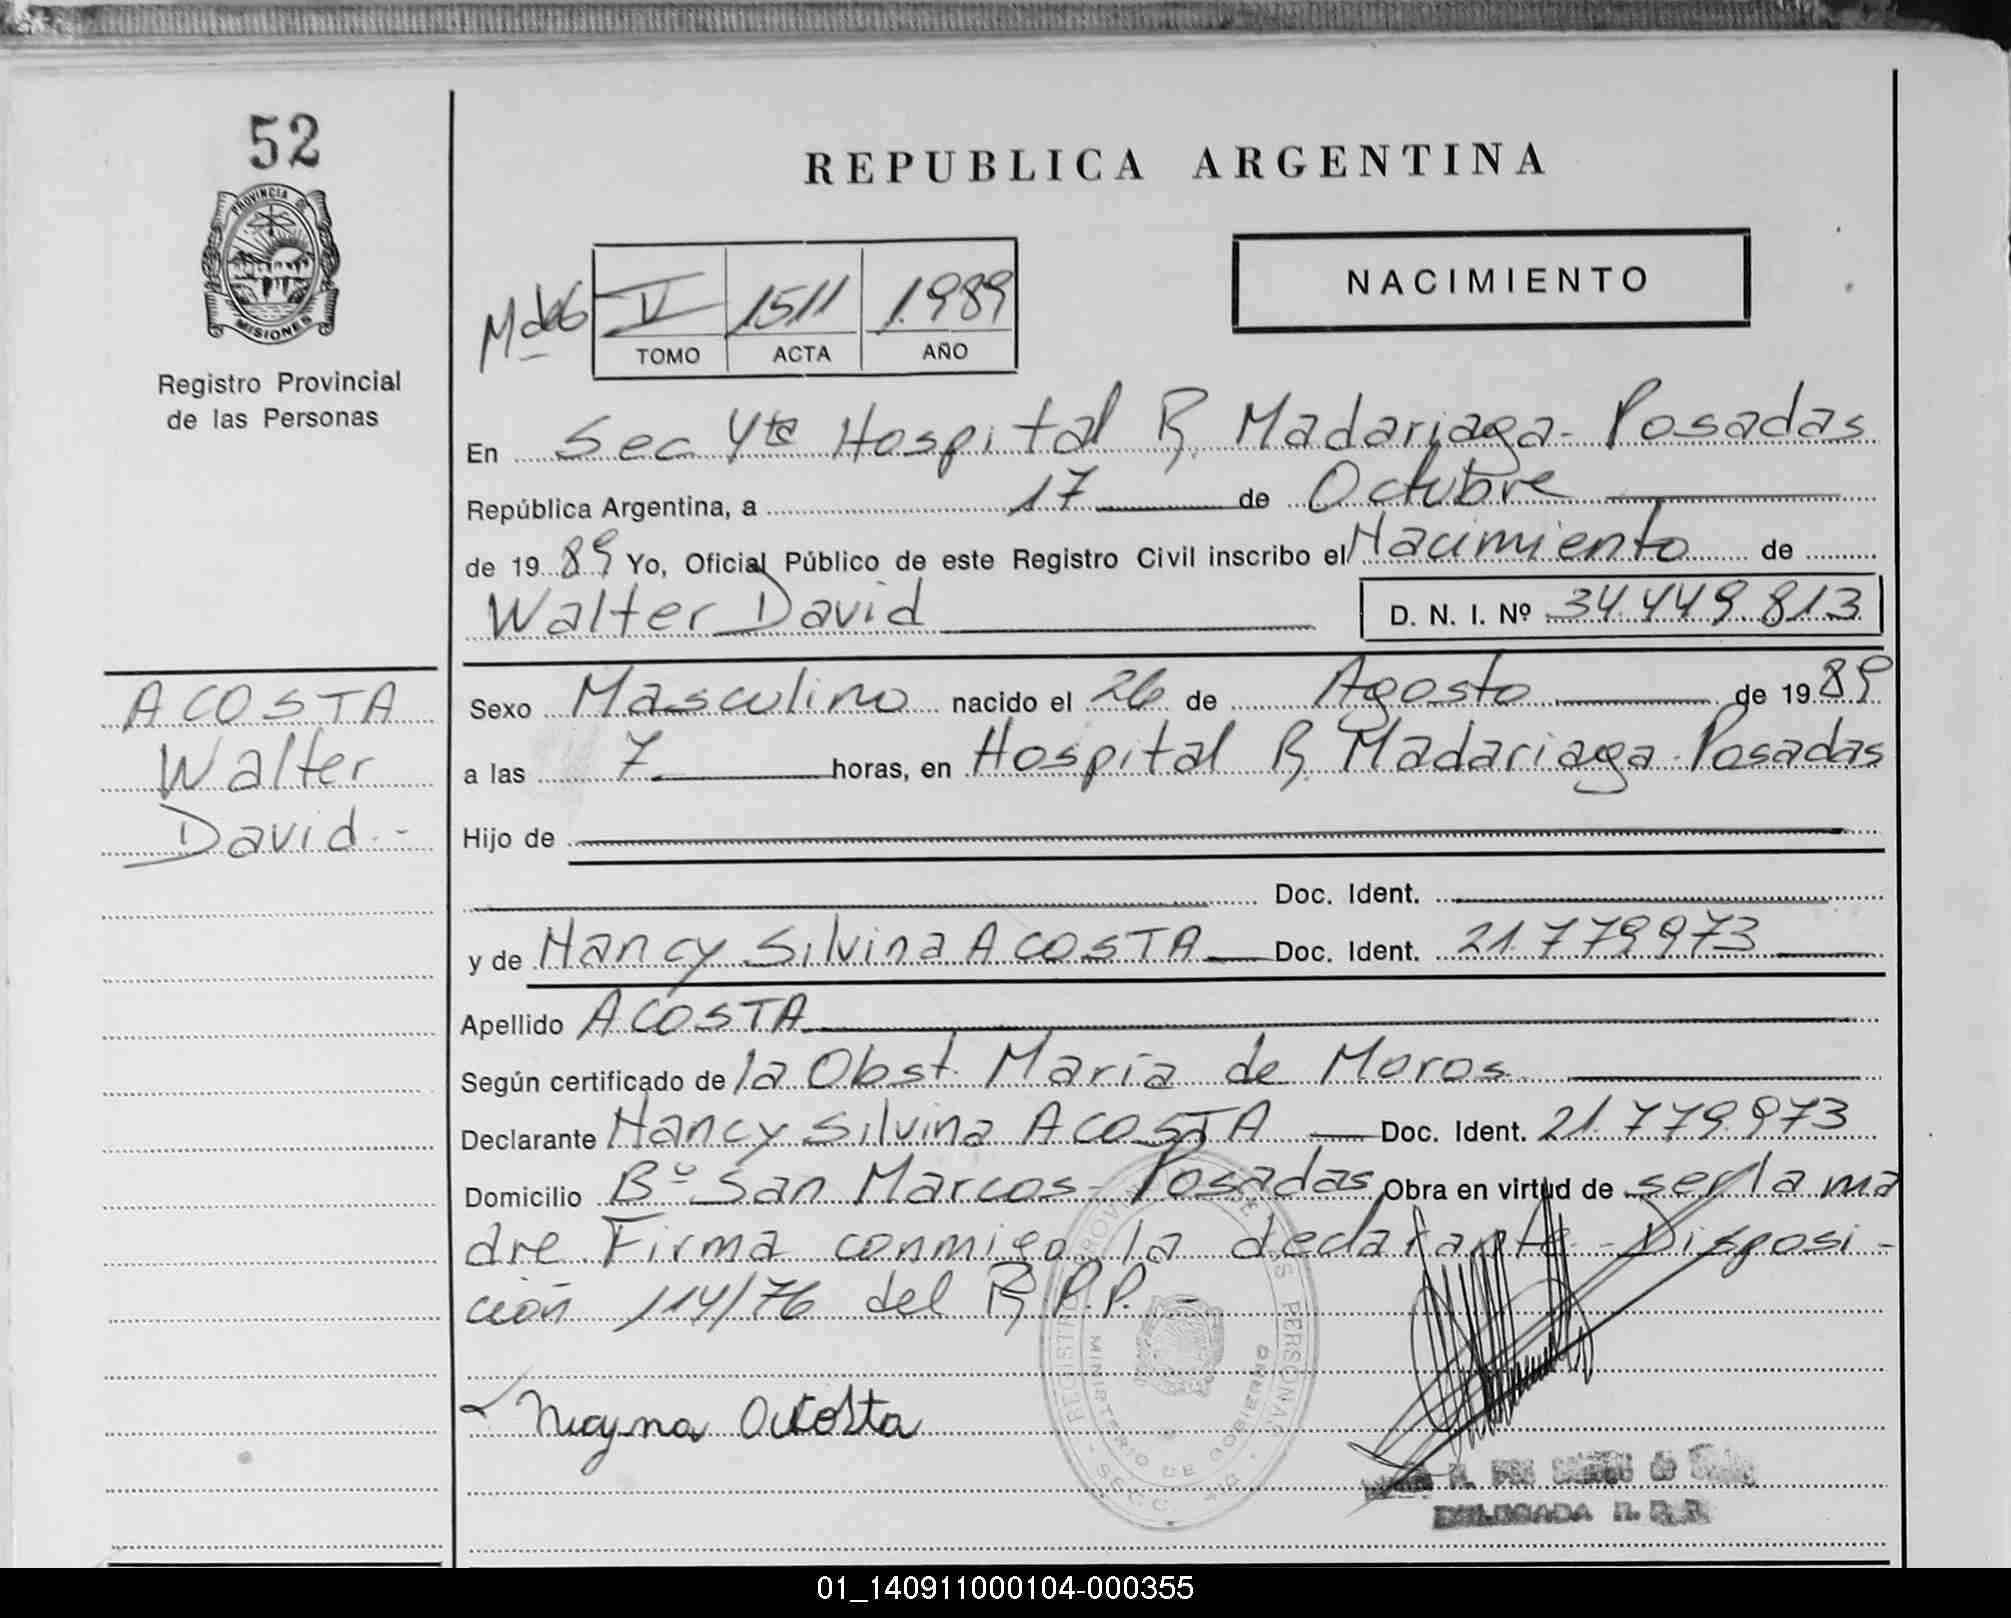 52
PROVINCIA DE
MISIONES
Registro Provincial
de las Personas
REPUBLICA ARGENTINA
NACIMIENTO
V 1511 1.989
TOMO ACTA AÑO
En Sec Yta Hospital R. Madariaga - Posadas
República Argentina, a 17 de Octubre
de 19 89 Yo, Oficial Público de este Registro Civil inscribo el Nacimiento de
Walter David D. N. I. Nº 34.449.813
ACOSTA
Walter
David.-
Sexo Masculino nacido el 26 de Agosto de 19 89
a las 7 horas, en Hospital R. Madariaga - Posadas
Hijo de
Doc. Ident.
y de Nancy Silvina ACOSTA Doc. Ident. 21.779.973
Apellido ACOSTA
Según certificado de la Obst. María de Moros
Declarante Nancy Silvina ACOSTA Doc. Ident. 21.779.973
Domicilio Bº San Marcos - Posadas Obra en virtud de ser la ma
dre. Firma conmigo la declarante - Disposi -
ción 114/76 del R.P.P. -
REGISTRO PROVINCIAL DE LAS PERSONAS
MINISTERIO DE GOBIERNO
Acosta
DELEGADA R. P. P.
01_140911000104-000355